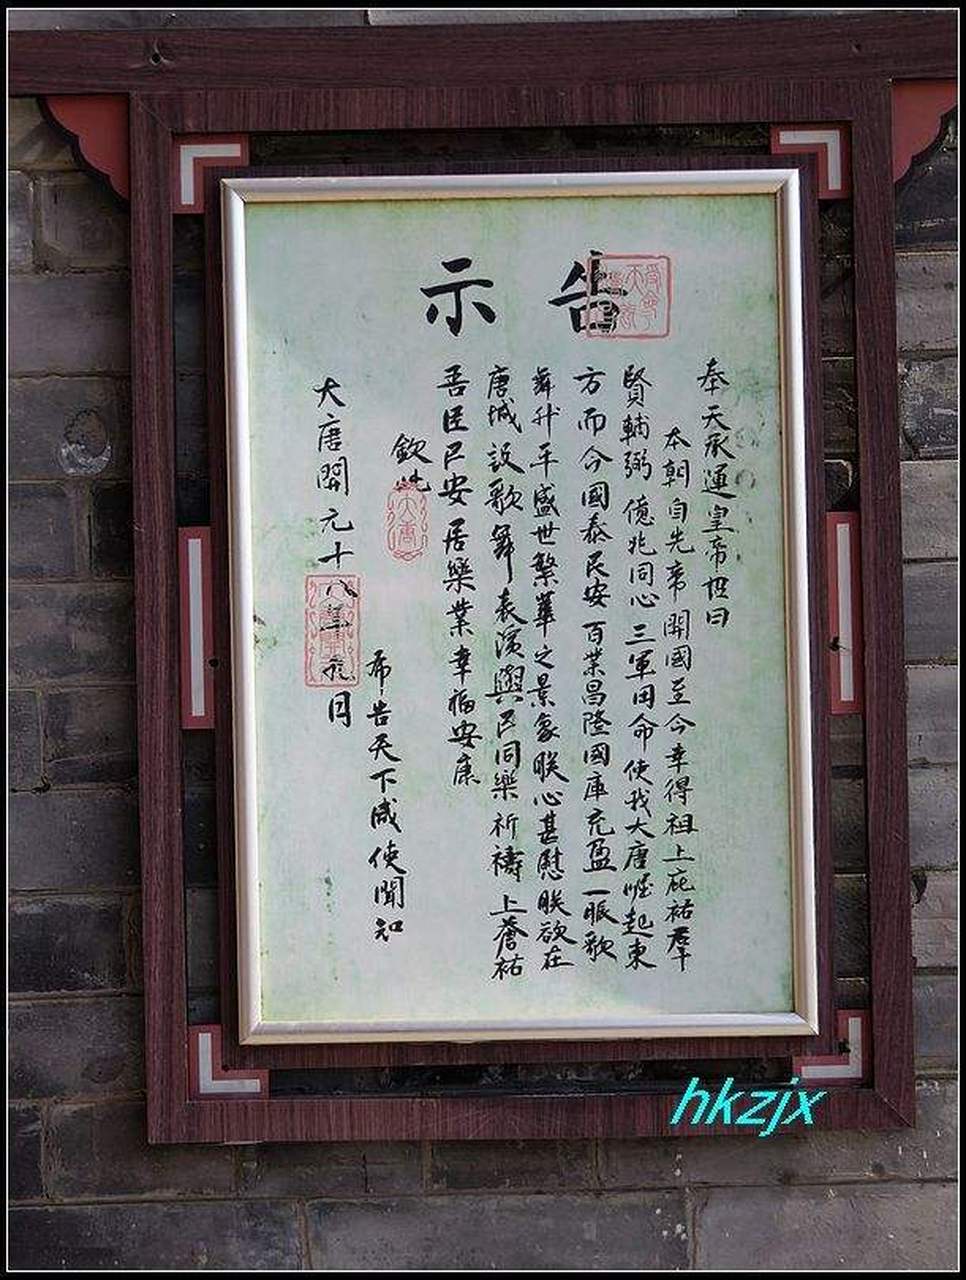 告示
奉天承運皇帝詔曰
本朝自先帝開國至今幸得祖上庇祐羣
賢輔弼億兆同心三軍用命使我大唐崛起東
方而今國泰民安百業昌隆國庫充盈一脤歌
舞升平盛世繁華之景象朕心甚慰朕欲在
唐城設歌舞表演與民同樂祈禱上蒼祐
吾臣民安居樂業幸福安康
欽此
布告天下咸使聞知
大唐開元十八年九月
大唐
hkzjx